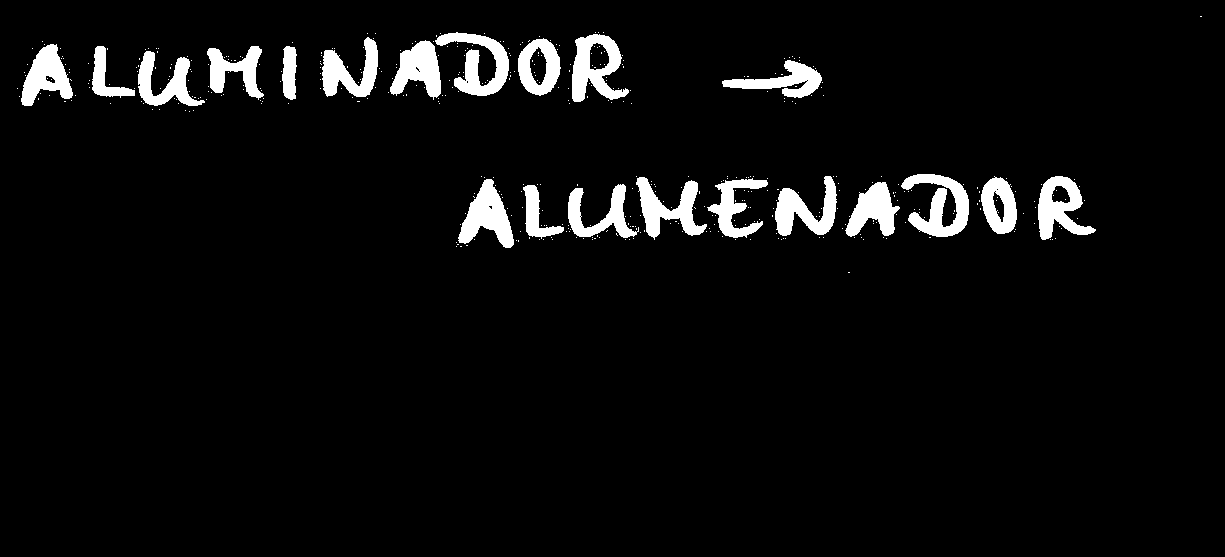 ALUMINADOR →
ALUMENADOR